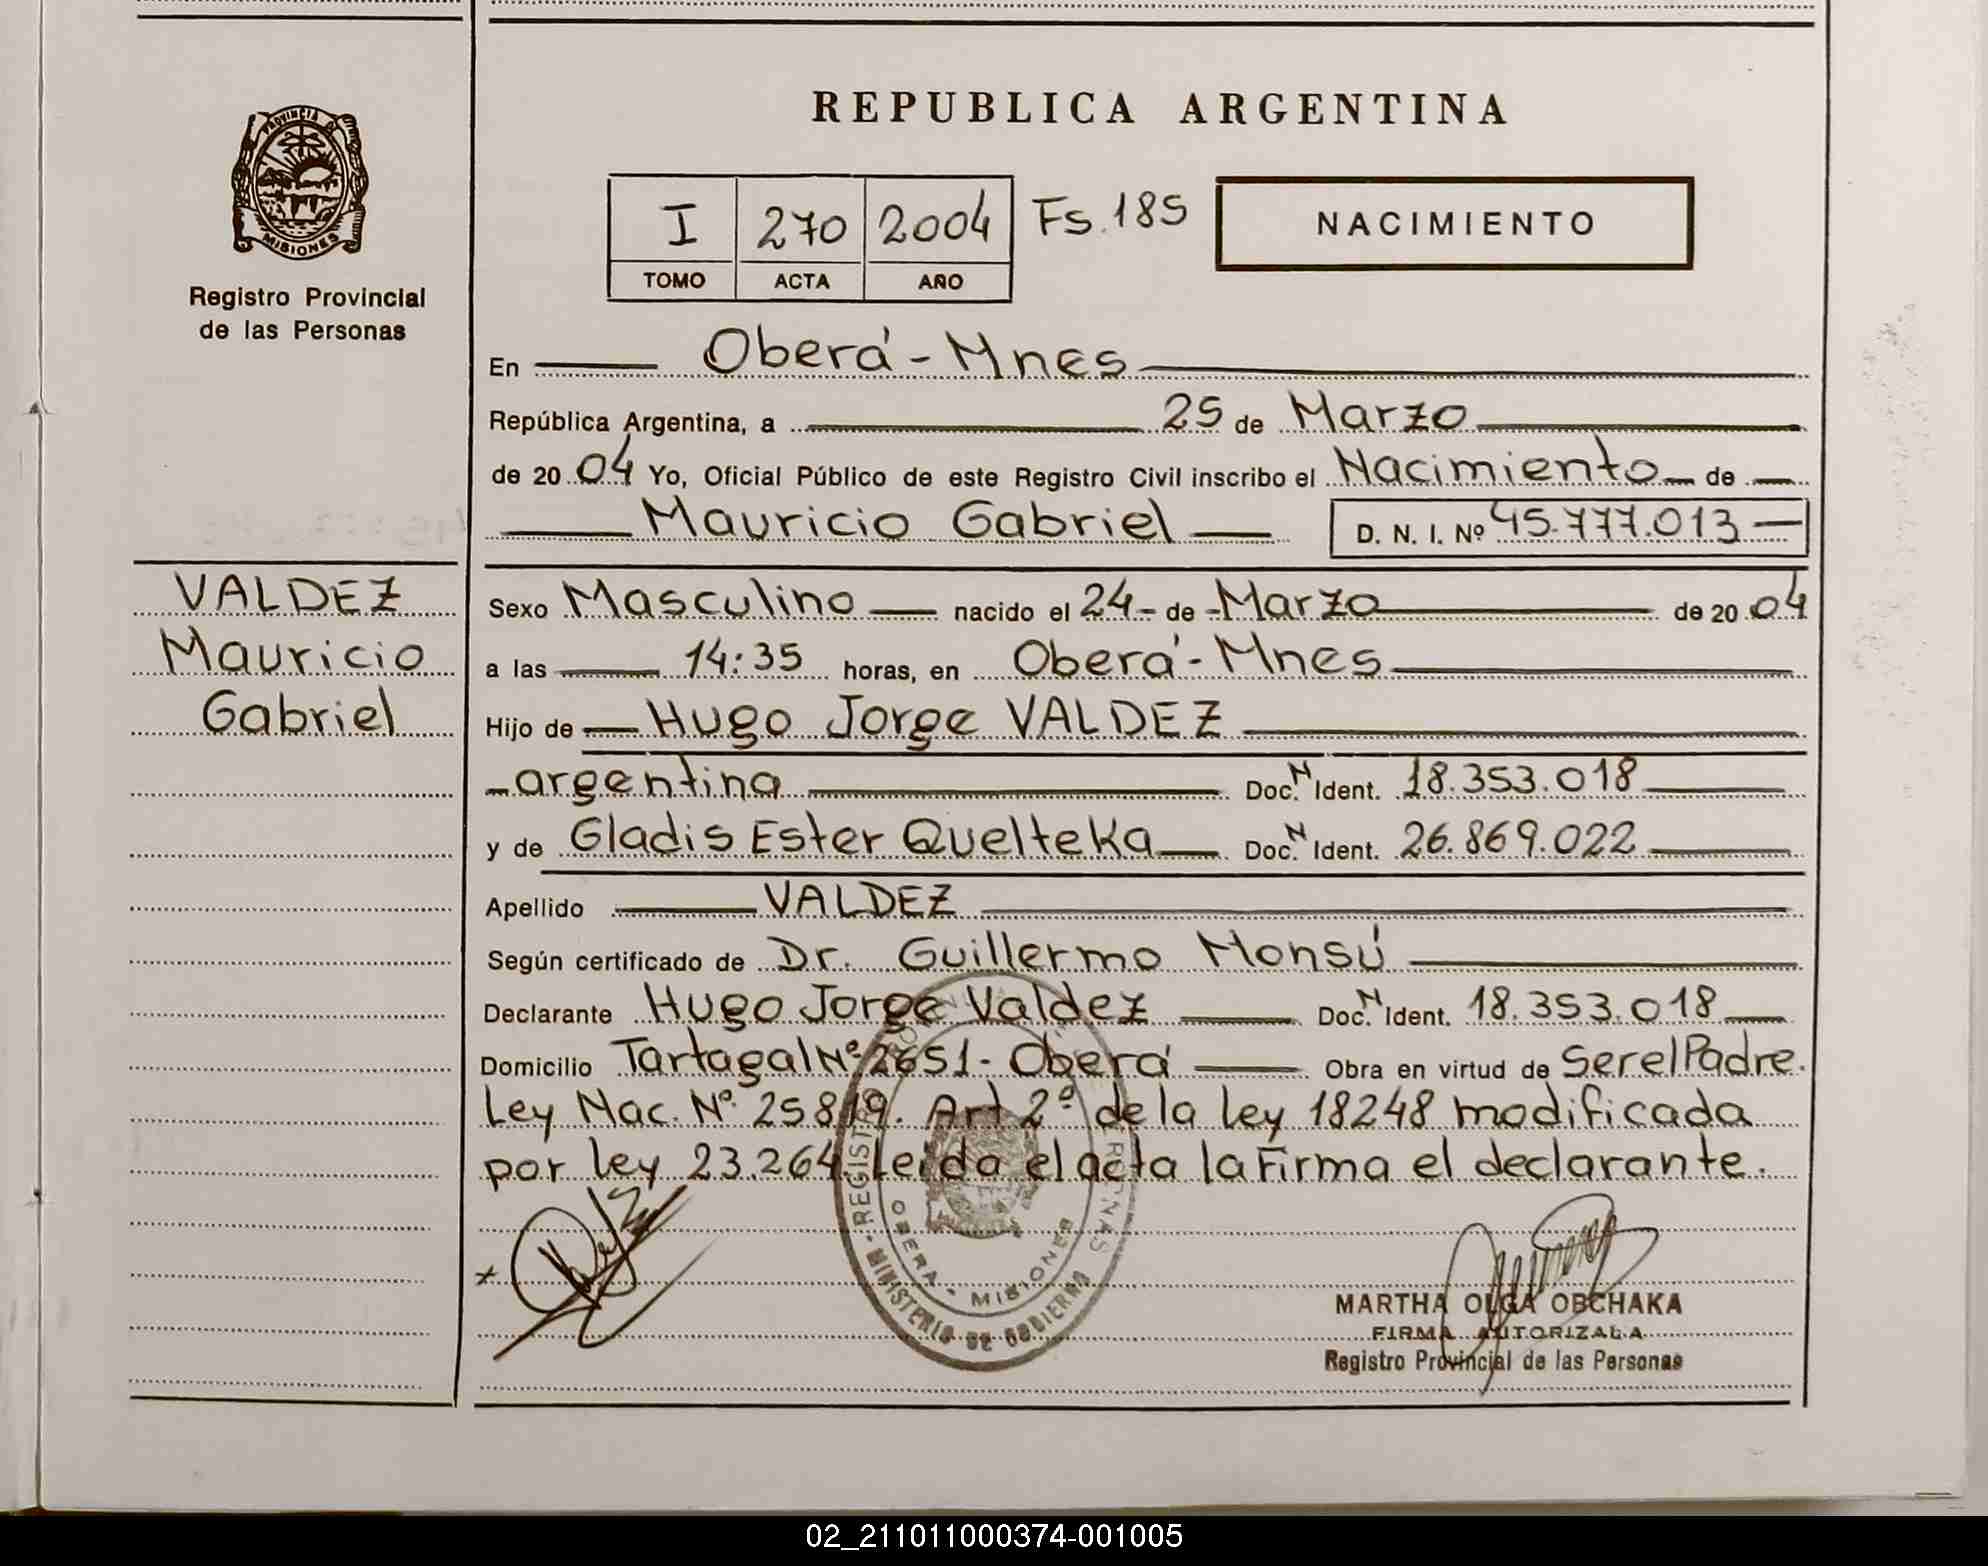 REPUBLICA ARGENTINA
PROVINCIA DE
MISIONES
Registro Provincial
de las Personas
I 270 2004 Fs. 185
TOMO ACTA AÑO
NACIMIENTO
En Oberá - Mnes
República Argentina, a 25 de Marzo
de 20 04 Yo, Oficial Público de este Registro Civil inscribo el Nacimiento de
Mauricio Gabriel D. N. I. Nº 45.777.013
VALDEZ
Mauricio
Gabriel
Sexo Masculino nacido el 24 - de - Marzo de 20 04
a las 14:35 horas, en Oberá - Mnes
Hijo de Hugo Jorge VALDEZ
argentina Doc. N Ident. 18.353.018
y de Gladis Ester Quelteka Doc. N Ident. 26.869.022
Apellido VALDEZ
Según certificado de Dr. Guillermo Monsú
Declarante Hugo Jorge Valdez Doc. N Ident. 18.353.018
Domicilio Tartagal Nº 2651 - Oberá Obra en virtud de Ser el Padre.
Ley Nac. Nº 25819. Art 2º de la ley 18248 modificada
por ley 23.264 Leida el acta la Firma el declarante.
REGISTRO
OBERA - MISIONES
MINISTERIO DE GOBIERNO
MARTHA OLGA OBCHAKA
FIRMA AUTORIZADA
Registro Provincial de las Personas
02_211011000374-001005